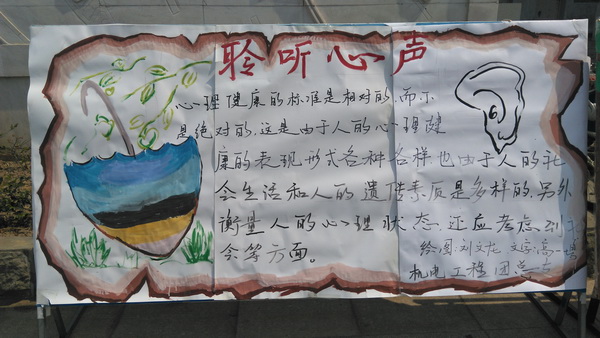 聆听心声
心理健康的标准是相对的,而不
是绝对的,这是由于人的心理健
康的表现形式各种各样也由于人的社
会生活和人的遗传素质是多样的,另外
衡量人的心理状态,还应考虑到
会等方面。
绘图:刘文龙 文字:高
机电工程 团总支